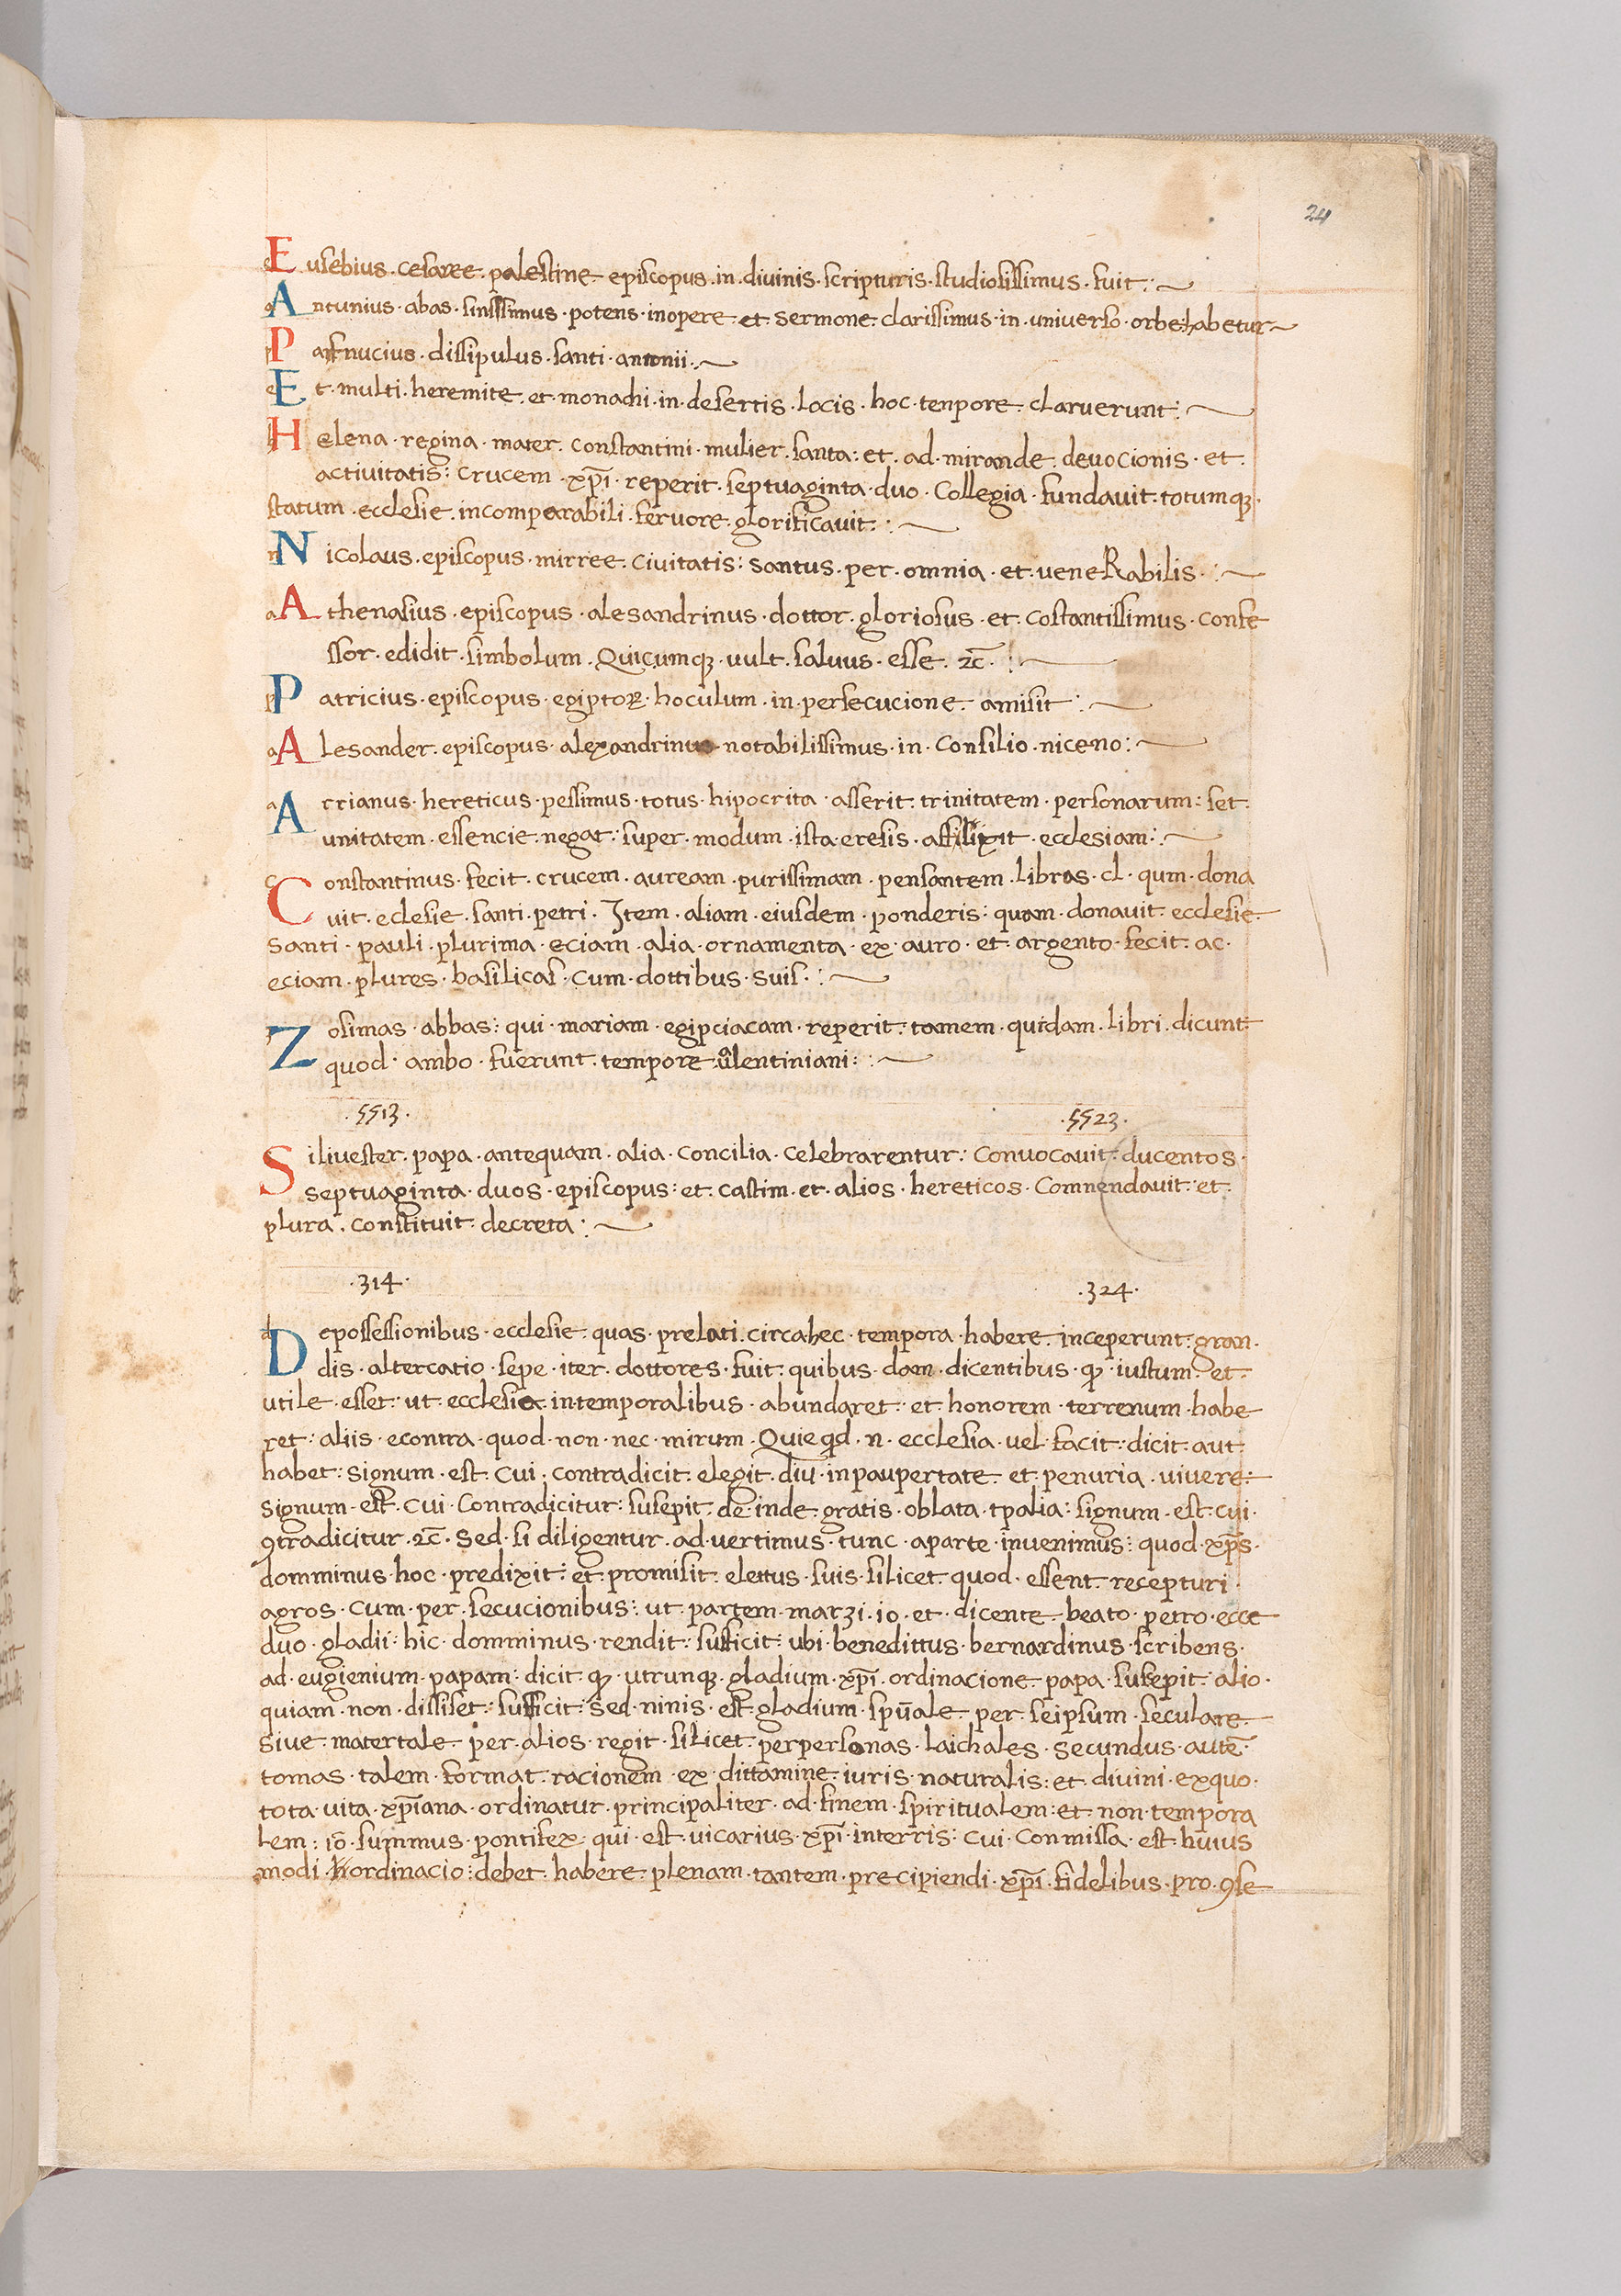 24
Eusebius. cesaree. palestine episcopus. in. divinis. scripturis. studiosissimus. fuit:
Antunius. abas. potens. inopere et sermone clarissimus. in. universo. orbe habetur
Pafnucius. dissipulus. santi. antonii.
Et. multi. heremite. et. monachi. in. desertis. locis. hoc. tenpore. claruerunt:
Helena. regina. mater. constantini. mulier. santa: et. ad. mirande. devocionis. et.
activitatis: crucem. xp̄i. reperit. septuaginta. duo. collegia. fundavit. totumqꝫ.
statum. ecclesie. incomparabili. fervore. glorificavit:
Nicolaus. episcopus. mirree. civitatis: santus. per. omnia. et. veneRabilis.
Athenasius. episcopus. alesandrinus. dottor. gloriosus. et. costantissimus. confe
ssor. edidit. simbolum. Quicumqꝫ. vult. salvus. esse. ⁊c̄.
Patricius. episcopus. egiptoꝝ. hoculum. in. persecucione. amisit:
Alesander. episcopus. alexandrinus notabilissimus. in. Consilio. niceno:
Arrianus. hereticus. pessimus. totus. hipocrita. asserit. trinitatem. personarum: set.
unitatem. essencie. negat: super. modum. ista. eresis. ecclesiam:
Constantinus. fecit. crucem. auream. purissimam. pensantem. libras. cl. qum. dona
vit. eclesie. santi. petri. Item. aliam. eiusdem. ponderis: quam. donavit. ecclesie
santi. pauli. plurima. eciam. alia. ornamenta. ex. auro. et. argento. fecit. ac.
eciam. plures. basilicas. cum. dottibus. suis.
Zosimas. abbas: qui. mariam. egipciacam. reperit. tamem. quidam. libri. dicunt
quod. ambo. fuerunt. tempore valentiniani:
.5513. .5523.
Silivester. papa. antequam. alia. concilia. celebrarentur: convocavit. ducentos.
septuaginta. duos. episcopus: et. castim. et. alios. hereticos. Comnendavit. et.
plura. constituit decreta:
.314. .324.
Depossessionibus. ecclesie. quas. prelati. circahec. tempora. habere. inceperunt: gran.
dis. altercatio. sepe. iter. dottores. fuit: quibus. dam. dicentibus. qꝫ. iustum. et.
utile. esset: ut. ecclesia. intemporalibus. abundaret: et. honorem. terrenum. habe
ret: aliis. econtra. quod. non. nec. mirum. n. ecclesia. vel. facit: dicit. aut.
habet: signum. est. cui. contradicit. elegit. diu. inpaupertate. et. penuria. vivere:
signum. est. cui. contradicitur: susepit. de. inde. gratis. oblata. tpalia: signum. est: cui.
ꝯtradicitur. ⁊c̄. sed. si diligentur. ad. vertimus. tunc. aparte. invenimus: quod. xp̄s.
domminus. hoc. predixit: et. promisit. elettus. suis. silicet. quod. essent. recepturi.
agros. cum. per. secucionibus: ut. partem. marzi. io. et. dicente. beato. petro. ecce
duo. gladii: hic. domminus. rendit: sufficit: ubi. benedittus. bernardinus. scribens.
ad. eugienium. papam: dicit. qꝫ. utrunqꝫ. gladium. xp̄i. ordinacione. papa. susepit: alio.
quiam. non. dissiset: sufficit: sed. ninis. est. gladium. spūale. per. seipsum. seculare.
sive. matertale. per. alios. regit. silicet. perpersonas. laichales. secundus. autē.
tomas. talem. format. racionem. ex. dittamine. iuris. naturalis: et. divini. exquo.
tota. vita. xp̄iana. ordinatur. principaliter. ad. finem. spiritualem: et. non. tempora
lem: iō. summus. pontifex. qui. est. vicarius. xp̄i. interris: cui. conmissa. est. huius
modi. ordinacio: debet. habere. plenam. tantem. precipiendi. xp̄i. fidelibus. pro. ꝯse